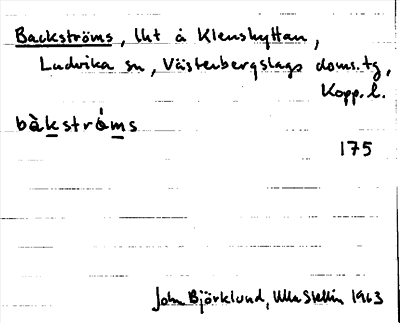 Backströms, lht å Klenshyttan,
Ludvika sn, Västerbergslags doms.tg,
Kopp.l.
bàkstrǻms
175
John Björklund, Ulla Stellin 1963